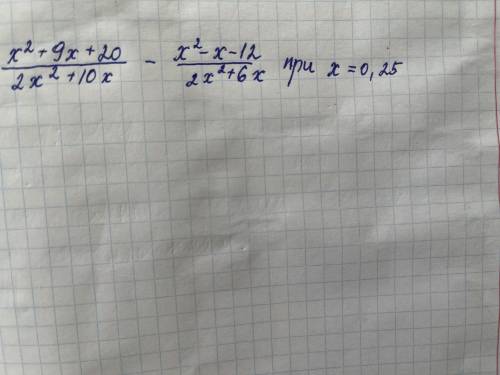 (x² + 9x + 20)/(2x² + 10x) - (x² - x - 12)/(2x² + 6x) при x = 0,25